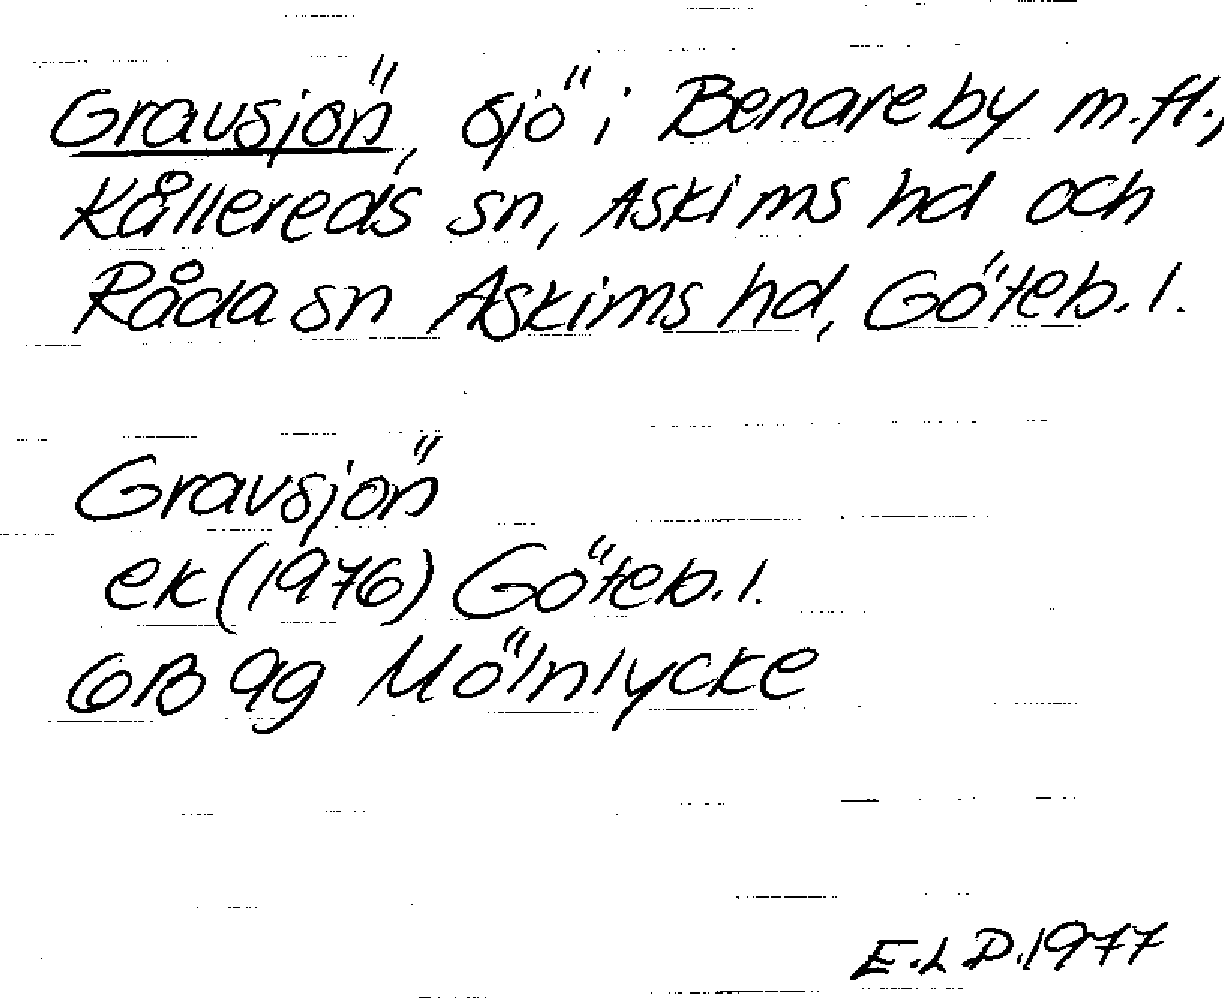 Gravsjön, sjö i Benareby m.fl.,
Kållereds sn, Askims hd och
Råda sn Askims hd, Göteb. l.
Gravsjön
ek (1976) Göteb. l.
6B 9g Mölnlycke
E.L D. 1977